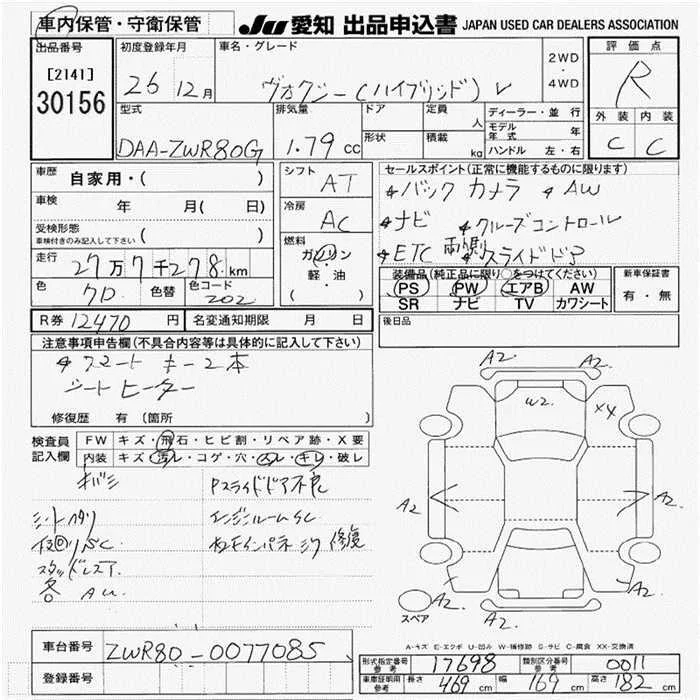 車内保管・守衛保管 JU 愛知 出品申込書 JAPAN USED CAR DEALERS ASSOCIATION
出品番号 初度登録年月 車名・グレード 評価点
[2141] 26 12月 ヴォクシー(ハイブリッド) V 2WD・4WD R
30156
型式 排気量 ドア 定員 人 ディーラー・並行 外装 内装
DAA-ZWR80G 1.79 cc 形状 積載 kg モデル年式 年 C C
ハンドル 左・右
車歴 自家用・( ) シフト AT セールスポイント(正常に機能するものに限ります)
車検 年 月( 日) 冷房 AC バック カメラ AW
受検形態 ナビ クルーズコントロール
車検付きのみ記入して下さい ( ) 燃料 ガソリン ETC 両側 スライドドア
走行 27万7千278km 軽・油 装備品(純正品に限り○をつけてください) 新車保証書
色 クロ 色替 色コード 202 ( ) PS PW エアB AW 有・無
SR ナビ TV カワシート
R券 12470 円 名変通知期限 月 日 後日品
注意事項申告欄(不具合内容等は具体的に記入して下さい)
スマートキー2本
シートヒーター
修復歴 有 (箇所
検査員記入欄 FW キズ・飛石・ヒビ割・リペア跡・X要
内装 キズ・汚レ・コゲ・穴・スレ・キレ・破レ
Pスライドドア不良
エンジンルームSC
修復
A2. A2.
W2. XX
A2. A2.
A2. A2.
A2.
スペア
A-キズ E-エクボ U-凹み W-補修跡 S-サビ C-腐食 XX-交換済
車台番号 ZWR80-0077085
登録番号
形式指定番号 参考 17698 類別区分番号 参考 0011
車庫証明用 参考 長さ 469 cm 幅 169 cm 高さ 182 cm